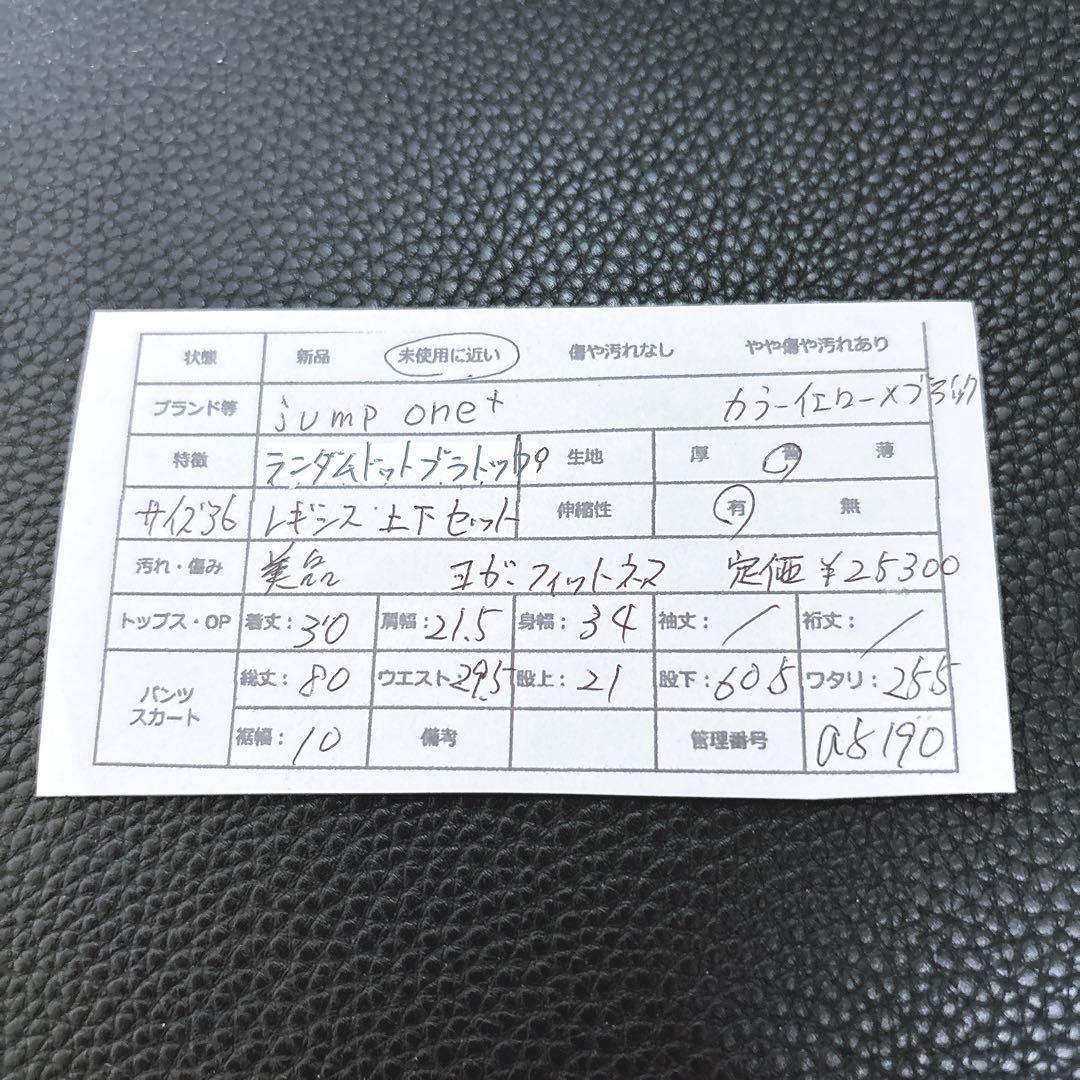 状態 新品 未使用に近い 傷や汚れなし やや傷や汚れあり
ブランド等 jump one+ カラーイエロー×ブラック
特徴 ランダムドットブラトップ 生地 厚 普 薄
サイズ36 レギンス 上下セット 伸縮性 有 無
汚れ・傷み 美品 ヨガ・フィットネス 定価¥25300
トップス・OP 着丈:30 肩幅:21.5 身幅:34 袖丈:/ 裄丈:/
パンツ スカート 総丈:80 ウエスト:29.5 股上:21 股下:60.5 ワタリ:25.5
裾幅:10 備考 管理番号 a5190